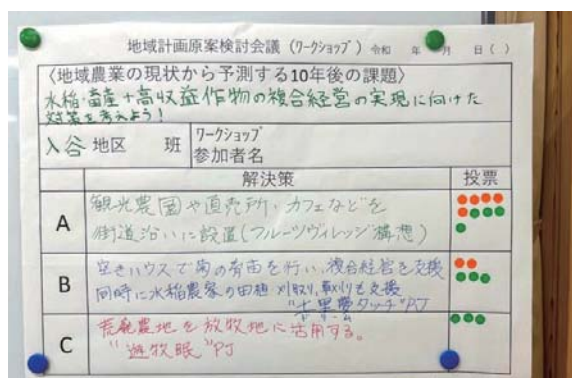 地域計画原案検討会議（ワークショップ）令和　年　月　日（　）
〈地域農業の現状から予測する10年後の課題〉
水稲・畜産+高収益作物の複合経営の実現に向けた
対策を考えよう！
入谷 地区　班　ワークショップ
参加者名
解決策　投票
A　観光農園や直売所・カフェなどを
街道沿いに設置（フルーツヴィレッジ構想）
B　空きハウスで菊の育苗を行い、複合経営を支援
同時に水稲農家の田植 刈取り、草刈りも支援
タッチ"PJ
C　荒廃農地を放牧地に活用する。
"遊牧眠"PJ